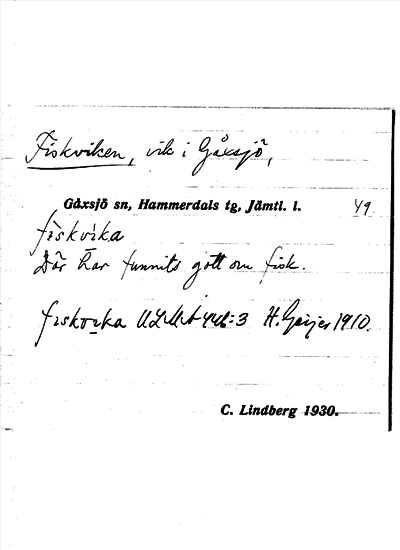 Fiskviken, vik i Gåxsjö,
Gåxsjö sn, Hammerdals tg, Jämtl. l. 49
fìskvìka
Där har funnits gott om fisk.
fıskvıka ULMA 446:3 H. Geijer 1910.
C. Lindberg 1930.